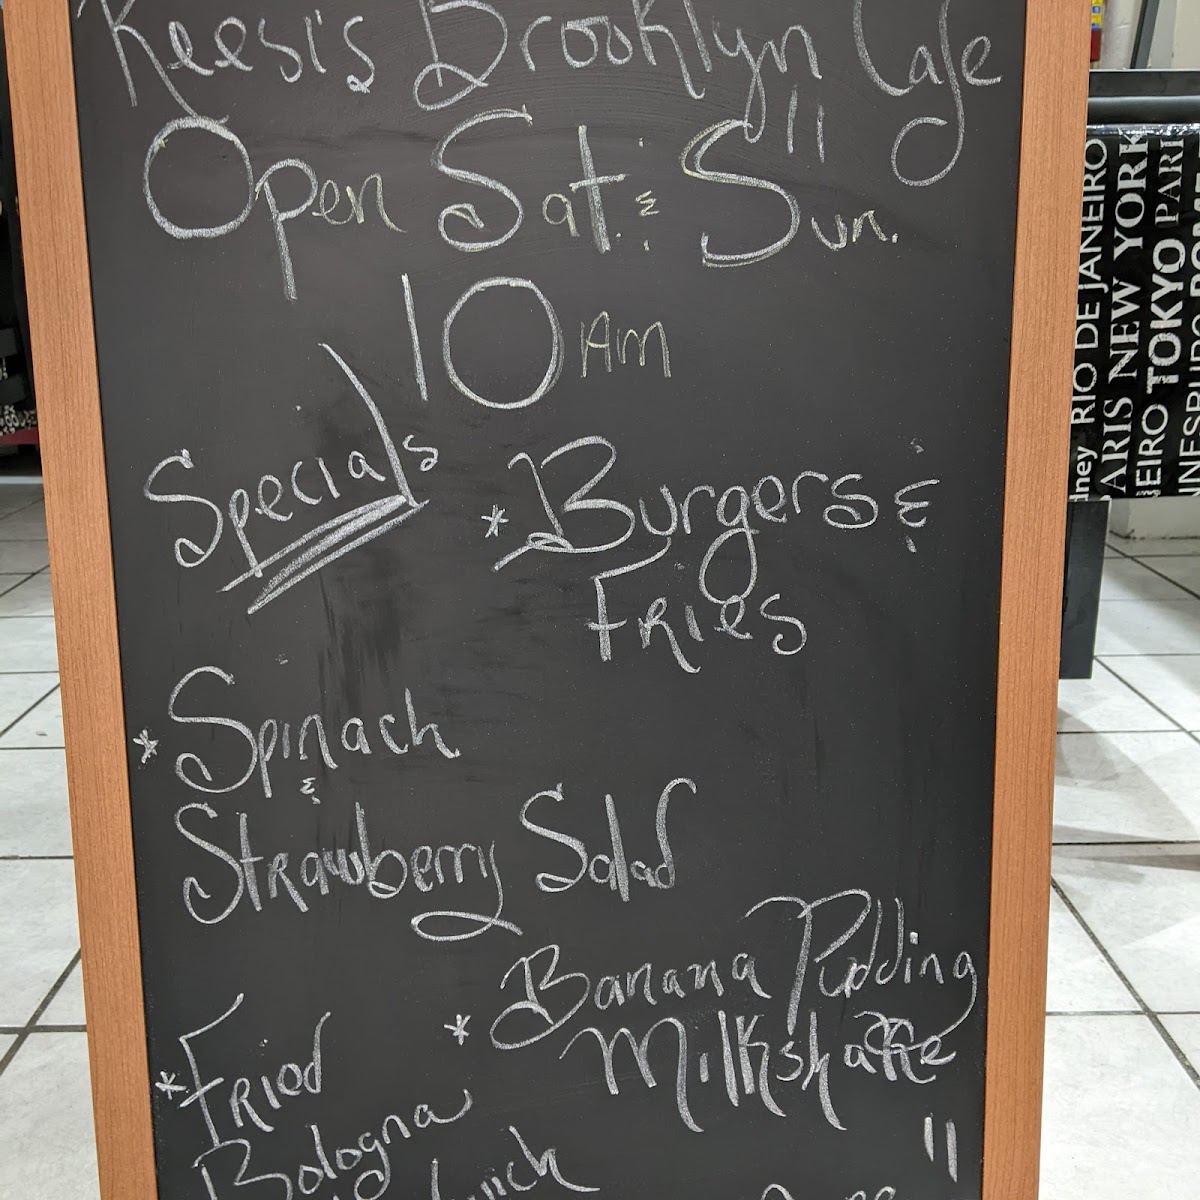 Keesi's Brooklyn Cafe
Open Sat. & Sun.
10 AM
Specials
* Burgers &
Fries
* Spinach
&
Strawberry Salad
* Banana Pudding
Milkshake
* Fried
Bologna
RIO DE JANEIRO
PARIS NEW YORK
TOKYO